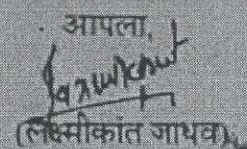 आपला,
(लक्ष्मीकांत जाधव)